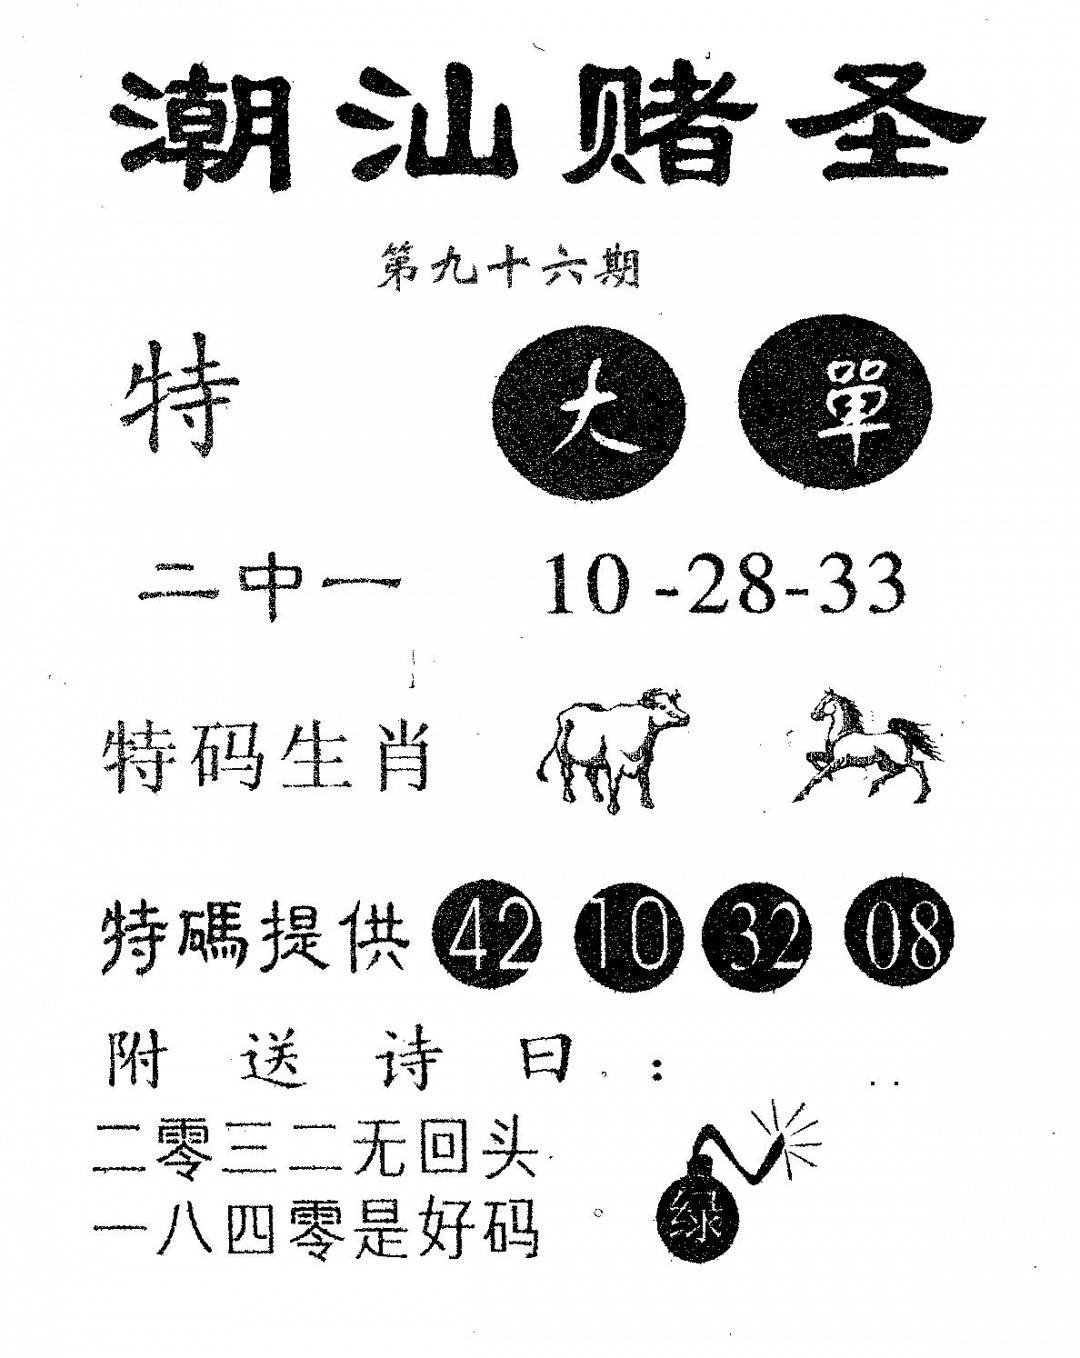 潮汕赌圣
第九十六期
特 大 單
二中一 10-28-33
特码生肖
特碼提供 42 10 32 08
附送诗曰：
二零三二无回头
一八四零是好码
绿